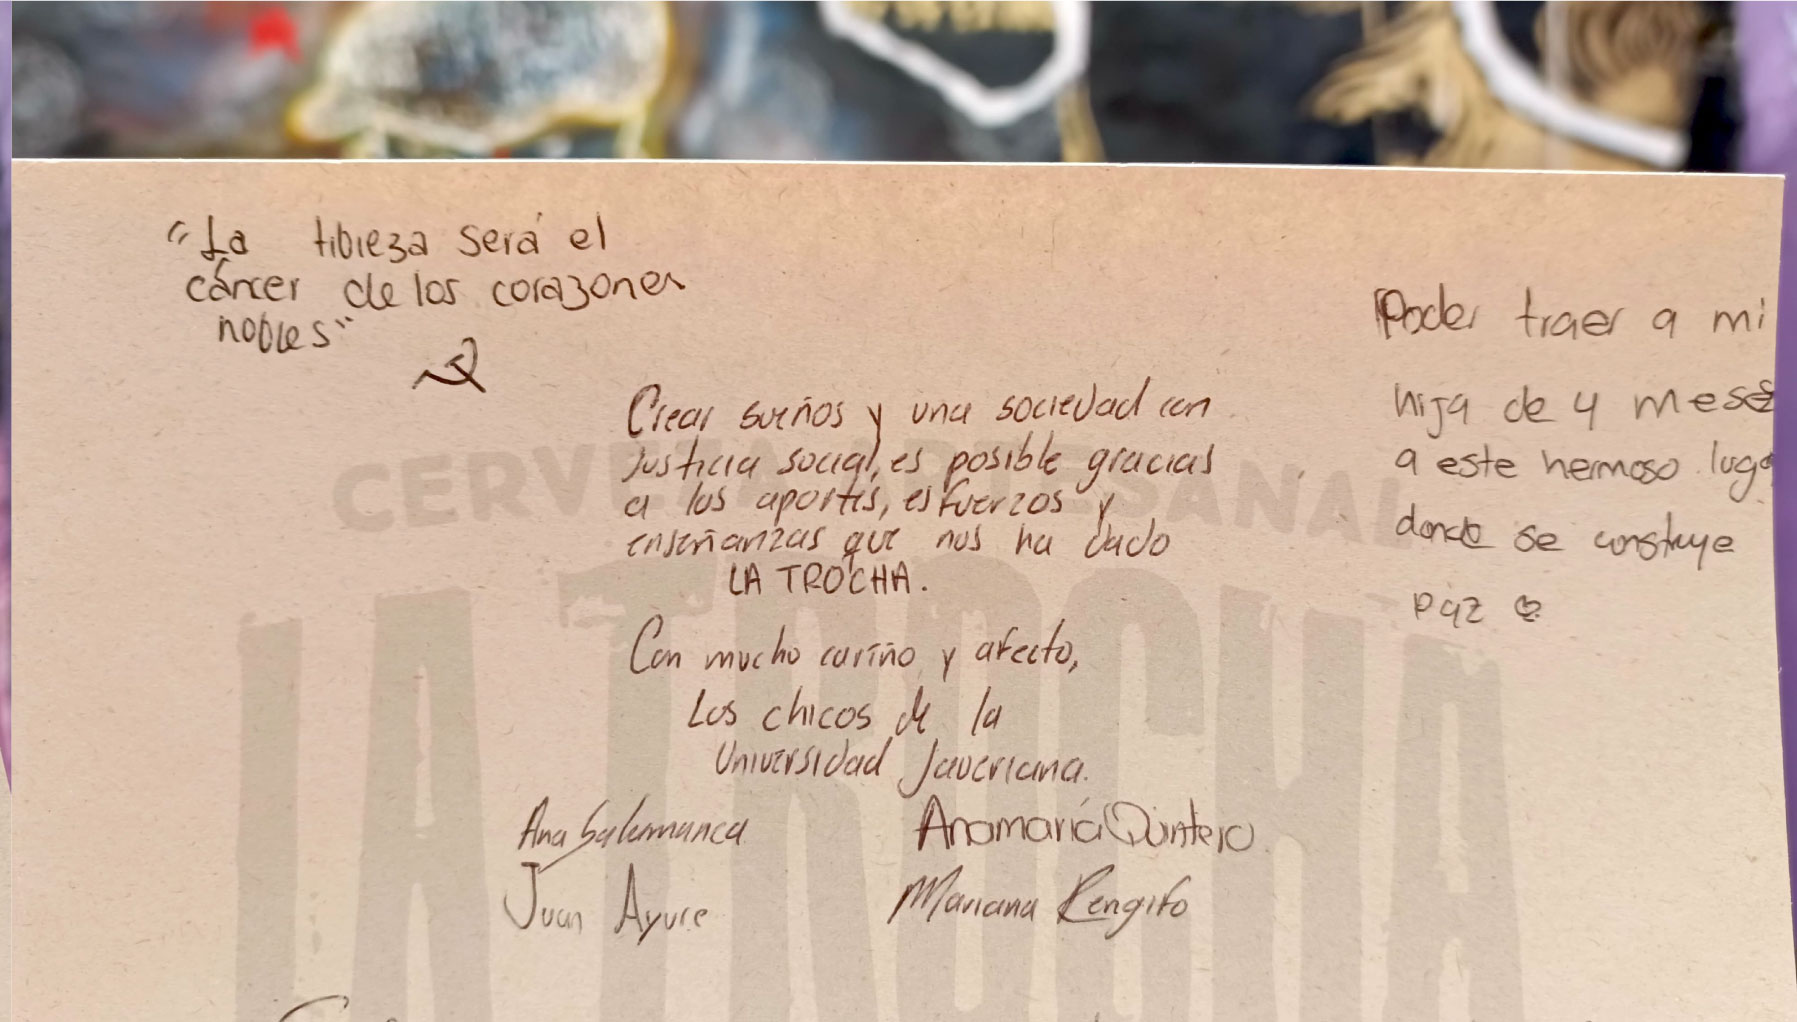 "La tibieza será el
cáncer de los corazones
nobles"
Crear sueños y una sociedad con
justicia social, es posible gracias
a los aportes, esfuerzos y
enseñanzas que nos ha dado
LA TROCHA.
Con mucho cariño y afecto,
Los chicos de la
Universidad Javeriana.
Ana Salamanca
Anamaría Quintero
Juan Ayure
Mariana Rengifo
Poder traer a mi
hija de 4 meses
a este hermoso luga
donde se construye
paz
CERVEZA ARTESANAL
LA TROCHA